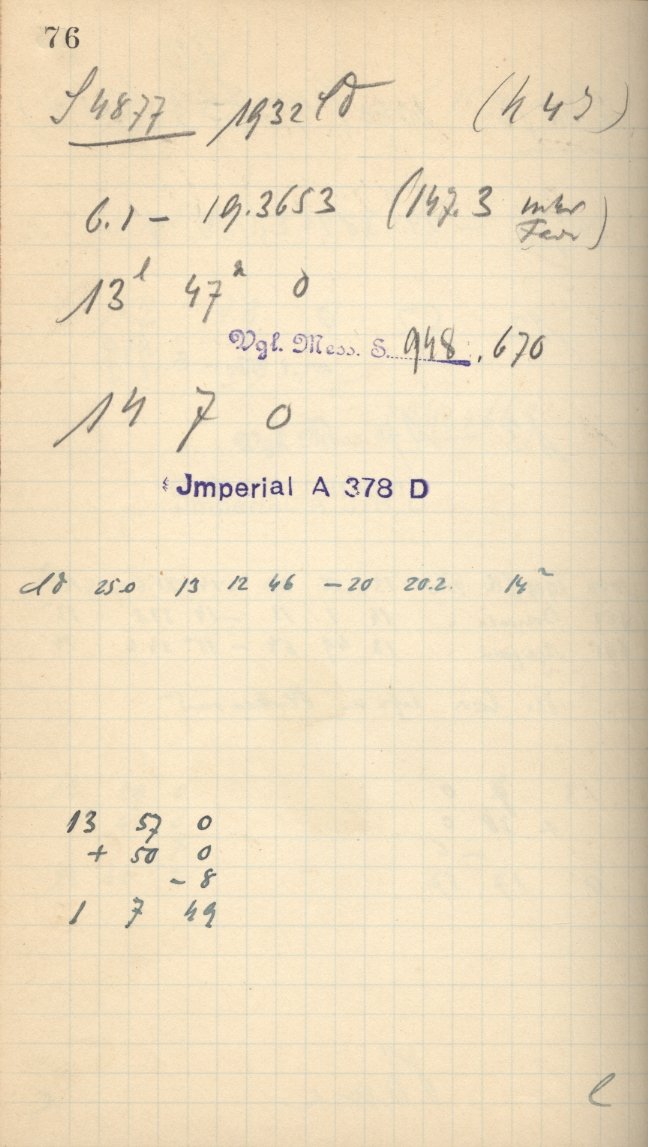 76
S 4877 1932 ld (h 45)
6.1 – 19.3653 (147.3 mtr
Feor)
13 l 47 m 0
Vgl. Mess. S. 948.670
14 7 0
Jmperial A 378 D
ld 250 13 12 46 – 20 20.2. 14 m
13 57 0
+ 50 0
– 8
1 7 49